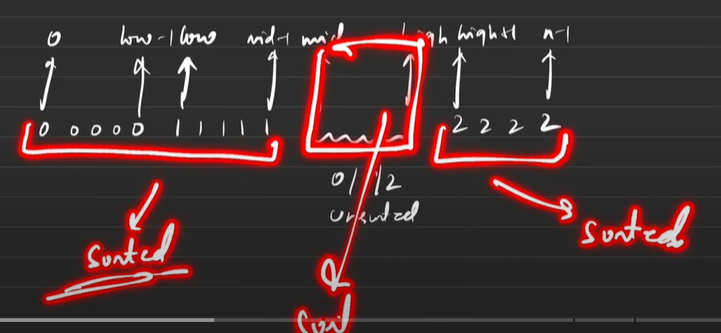 0 low-1 low mid-1 mid high high+1 n-1
0 0 0 0 0 1 1 1 1 1 2 2 2 2
0/1/2
unsorted
sorted sorted
sort